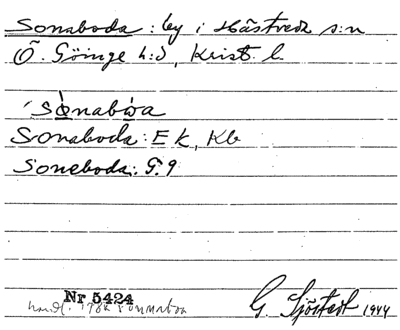 Sonaboda: by i Hästveda s:n
Ö. Göinge h:d, Krist. l.
Sonaboda: Ek, Kb
Soneboda: G.9
Nr 5424
G. Sjöstedt 1944